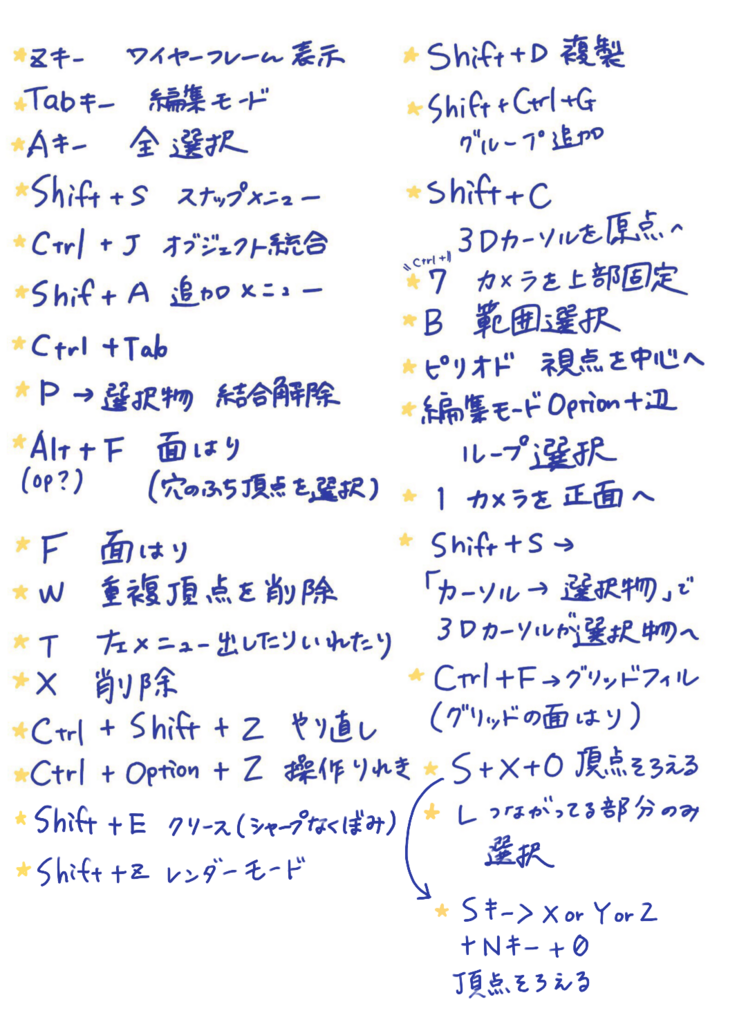 Zキー ワイヤーフレーム表示
Tabキー 編集モード
Aキー 全選択
Shift + S スナップメニュー
Ctrl + J オブジェクト統合
Shif + A 追加メニュー
Ctrl + Tab
P → 選択物 結合解除
Alt + F 面はり
(op?) (穴のふち頂点を選択)
F 面はり
W 重複頂点を削除
T 左メニュー出したりいれたり
X 削除
Ctrl + Shift + Z やり直し
Ctrl + Option + Z 操作りれき
Shift + E クリース(シャープなくぼみ)
Shift + Z レンダーモード
Shift + D 複製
Shift + Ctrl + G
グループ追加
Shift + C
3Dカーソルを原点へ
7 カメラを上部固定
B 範囲選択
ピリオド 視点を中心へ
編集モード Option + 辺
ループ選択
1 カメラを正面へ
Shift + S →
「カーソル → 選択物」で
3Dカーソルが選択物へ
Ctrl + F → グリッドフィル
(グリッドの面はり)
S + X + 0 頂点そろえる
L つながってる部分のみ
選択
Sキー > X or Y or Z
+ Nキー + 0
頂点そろえる